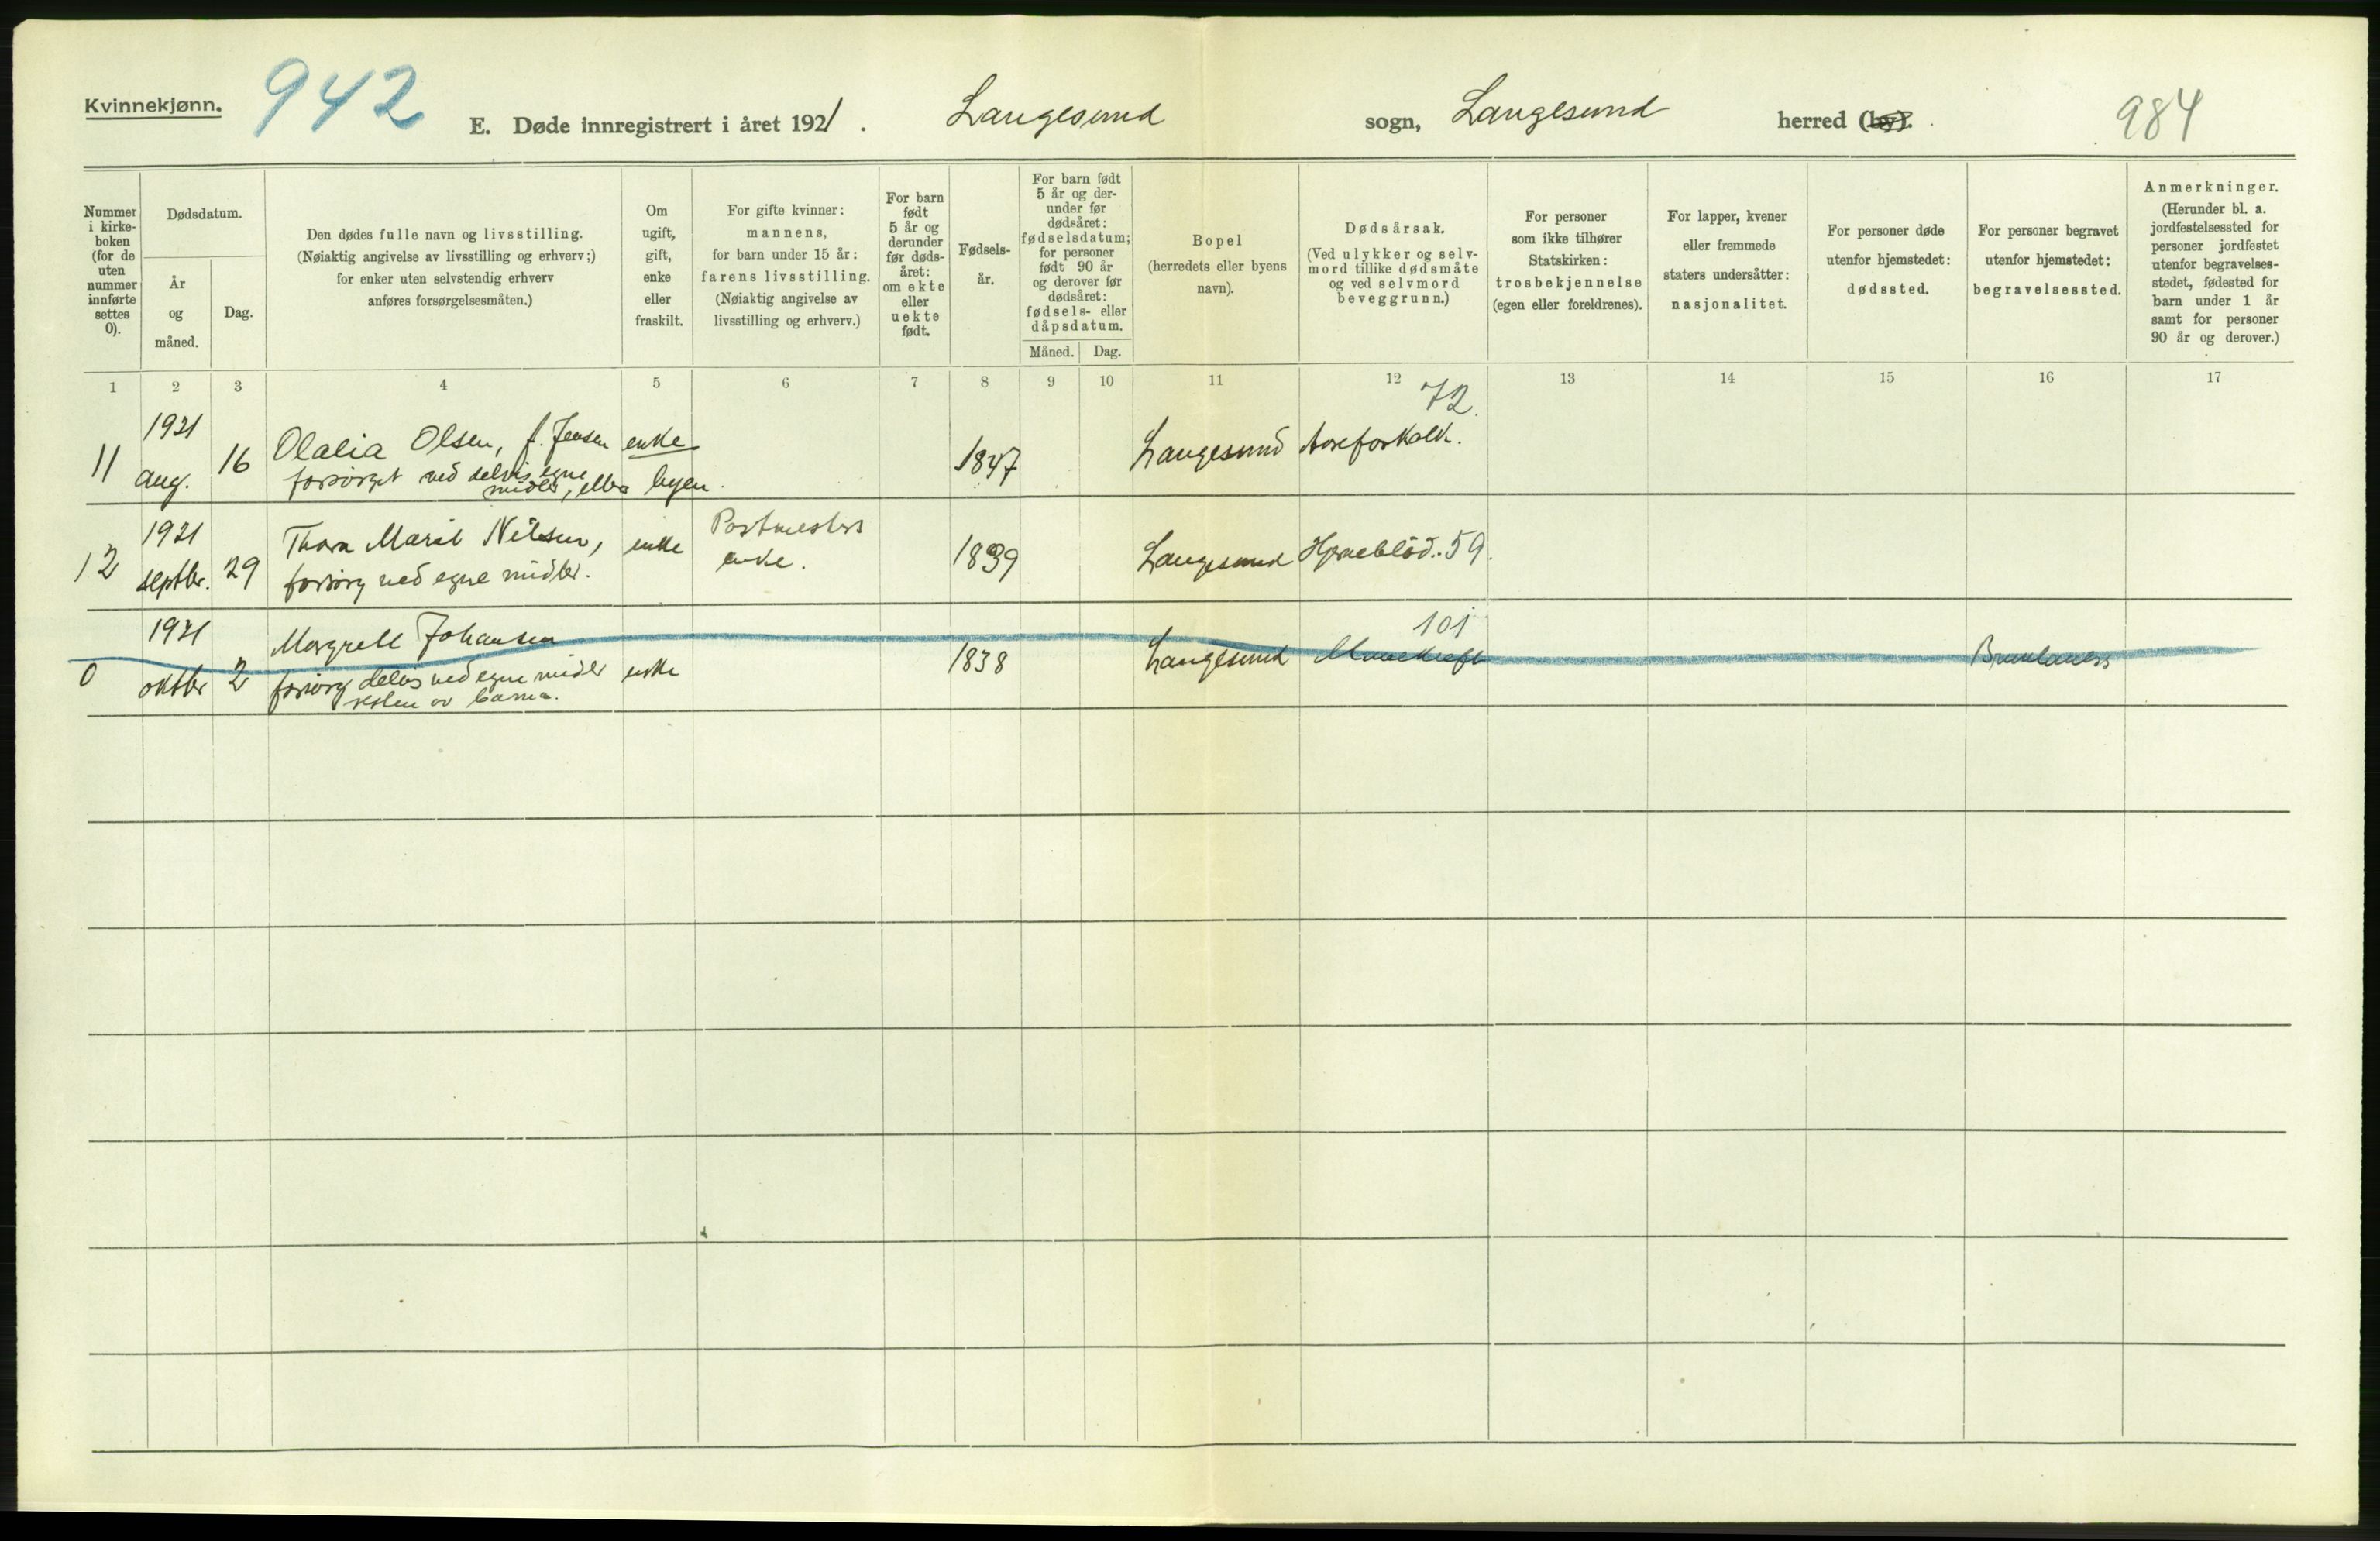 Kvinnekjønn.
942
E. Døde innregistrert i året 1921.
Langesund
sogn,
Langesund
herred (by).
984
Nummer i kirke-boken (for de uten nummer innførte settes 0).
Dødsdatum.
År og måned.
Dag.
Den dødes fulle navn og livsstilling.
(Nøiaktig angivelse av livsstilling og erhverv;)
for enker uten selvstendig erhverv
anføres forsørgelsesmåten.)
Om ugift, gift, enke eller fraskilt.
For gifte kvinner:
mannens,
for barn under 15 år:
farens livsstilling.
(Nøiaktig angivelse av
livsstilling og erhverv.)
For barn født 5 år og derunder før døds-året: om ekte eller uekte født.
Fødsels-år.
For barn født 5 år og der-under før dødsåret: fødselsdatum; for personer født 90 år og derover før dødsåret: fødsels- eller dåpsdatum.
Måned.
Dag.
Bopel
(herredets eller byens
navn).
Dødsårsak.
(Ved ulykker og selv-
mord tillike dødsmåte
og ved selvmord
beveggrunn.)
For personer
som ikke tilhører
Statskirken:
trosbekjennelse
(egen eller foreldrenes).
For lapper, kvener
eller fremmede
staters undersåtter:
nasjonalitet.
For personer døde
utenfor hjemstedet:
dødssted.
For personer begravet
utenfor hjemstedet:
begravelsessted.
Anmerkninger.
(Herunder bl. a.
jordfestelsessted for
personer jordfestet
utenfor begravelses-
stedet, fødested for
barn under 1 år
samt for personer
90 år og derover.)
1 2 3 4 5 6 7 8 9 10 11 12 13 14 15 16 17
72.
11 1921 aug. 16 Olalia Olsen, f. Jensen enke 1847 Langesund Aareforkalk.
forsørget ved delvis egne
midler, ellers byen.
12 1921 septbr. 29 Thora Marie Nilsen, enke Postmesters enke. 1839 Langesund Hjerneblød. 59.
forsørg ved egne midler.
101
0 1921 oktbr 2 Margrete Johansen enke 1838 Langesund Mavekreft Brunlanes
forsørg delvis ved egne midler
resten av barna.